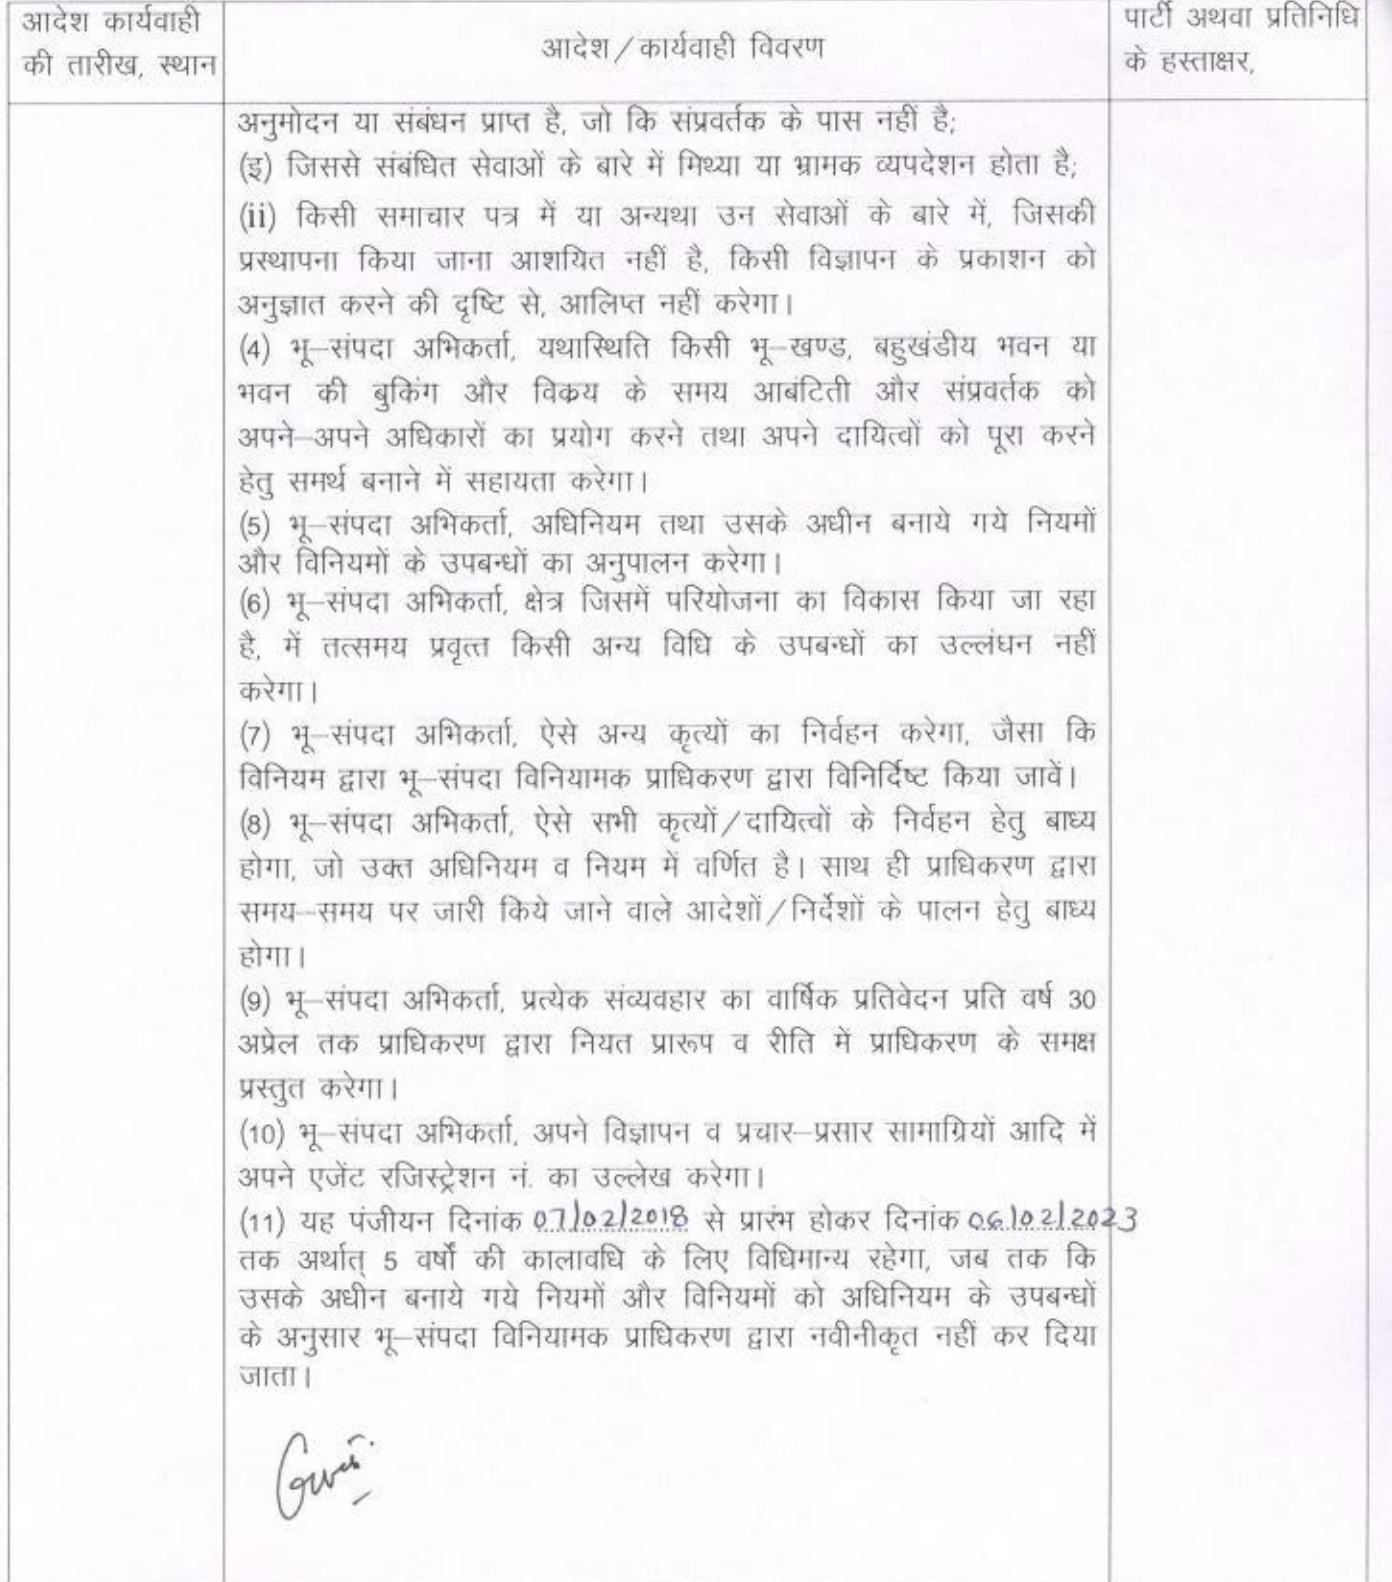 आदेश कार्यवाही
की तारीख, स्थान
आदेश/कार्यवाही विवरण
पार्टी अथवा प्रतिनिधि
के हस्ताक्षर,
अनुमोदन या संबंधन प्राप्त है, जो कि संप्रवर्तक के पास नहीं है;
(इ) जिससे संबंधित सेवाओं के बारे में मिथ्या या भ्रामक व्यपदेशन होता है;
(ii) किसी समाचार पत्र में या अन्यथा उन सेवाओं के बारे में, जिसकी
प्रस्थापना किया जाना आशयित नहीं है, किसी विज्ञापन के प्रकाशन को
अनुज्ञात करने की दृष्टि से, आलिप्त नहीं करेगा।
(4) भू–संपदा अभिकर्ता, यथास्थिति किसी भू–खण्ड, बहुखंडीय भवन या
भवन की बुकिंग और विक्रय के समय आबंटिती और संप्रवर्तक को
अपने–अपने अधिकारों का प्रयोग करने तथा अपने दायित्वों को पूरा करने
हेतु समर्थ बनाने में सहायता करेगा।
(5) भू–संपदा अभिकर्ता, अधिनियम तथा उसके अधीन बनाये गये नियमों
और विनियमों के उपबन्धों का अनुपालन करेगा।
(6) भू–संपदा अभिकर्ता, क्षेत्र जिसमें परियोजना का विकास किया जा रहा
है, में तत्समय प्रवृत्त किसी अन्य विधि के उपबन्धों का उल्लंघन नहीं
करेगा।
(7) भू–संपदा अभिकर्ता, ऐसे अन्य कृत्यों का निर्वहन करेगा, जैसा कि
विनियम द्वारा भू–संपदा विनियामक प्राधिकरण द्वारा विनिर्दिष्ट किया जावें।
(8) भू–संपदा अभिकर्ता, ऐसे सभी कृत्यों/दायित्वों के निर्वहन हेतु बाध्य
होगा, जो उक्त अधिनियम व नियम में वर्णित है। साथ ही प्राधिकरण द्वारा
समय–समय पर जारी किये जाने वाले आदेशों/निर्देशों के पालन हेतु बाध्य
होगा।
(9) भू–संपदा अभिकर्ता, प्रत्येक संव्यवहार का वार्षिक प्रतिवेदन प्रति वर्ष 30
अप्रेल तक प्राधिकरण द्वारा नियत प्रारूप व रीति में प्राधिकरण के समक्ष
प्रस्तुत करेगा।
(10) भू–संपदा अभिकर्ता, अपने विज्ञापन व प्रचार–प्रसार सामाग्रियों आदि में
अपने एजेंट रजिस्ट्रेशन नं. का उल्लेख करेगा।
(11) यह पंजीयन दिनांक 07/02/2018 से प्रारंभ होकर दिनांक 06/02/2023
तक अर्थात् 5 वर्षों की कालावधि के लिए विधिमान्य रहेगा, जब तक कि
उसके अधीन बनाये गये नियमों और विनियमों को अधिनियम के उपबन्धों
के अनुसार भू–संपदा विनियामक प्राधिकरण द्वारा नवीनीकृत नहीं कर दिया
जाता।